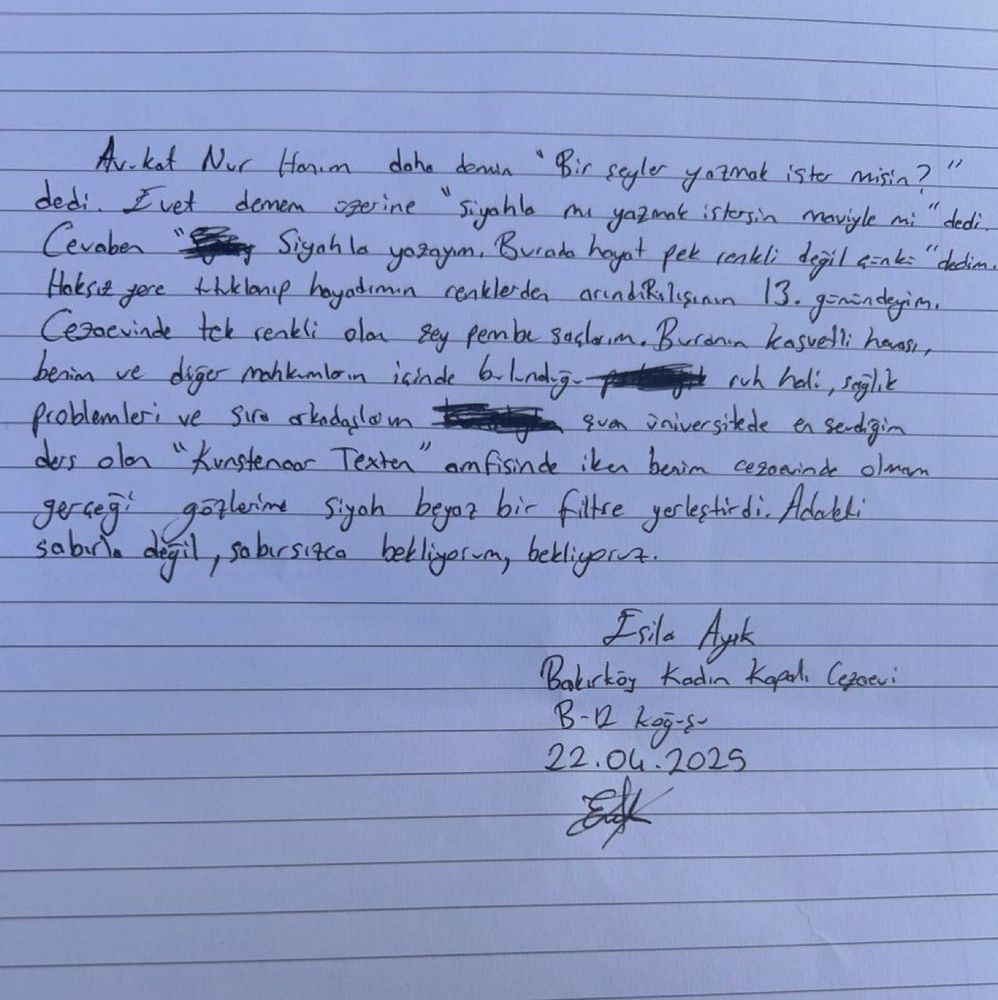 Avukat Nur Hanım daha demin "Bir şeyler yazmak ister misin?"
dedi. Evet demem üzerine "Siyahla mı yazmak istersin maviyle mi" dedi.
Cevaben " Siyahla yazayım. Burada hayat pek renkli değil çünkü" dedim.
Haksız yere tutuklanıp hayatımın renklerden arındırılışının 13. günündeyim.
Cezaevinde tek renkli olan şey pembe saçlarım. Buranın kasvetli havası,
benim ve diğer mahkumların içinde bulunduğu ruh hali, sağlık
problemleri ve sıra arkadaşlarım şuan üniversitede en sevdiğim
ders olan "Kunstenaar Texten" amfisinde iken benim cezaevinde olmam
gerçeği gözlerime siyah beyaz bir filtre yerleştirdi. Adaleti
sabırla değil, sabırsızca bekliyorum, bekliyoruz.
Esila Ayık
Bakırköy Kadın Kapalı Cezaevi
B-12 koğuşu
22.04.2025